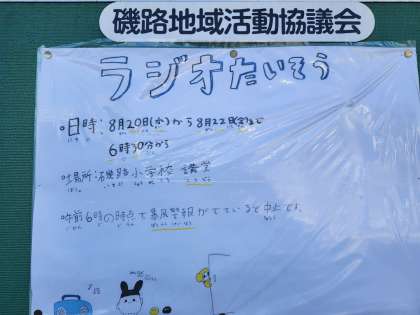 磯路地域活動協議会
ラジオたいそう
日時:8月20日(水)から8月22日(金)まで
6時30分から
場所:磯路小学校 講堂
午前6時の時点で暴風警報がでていると中止です。